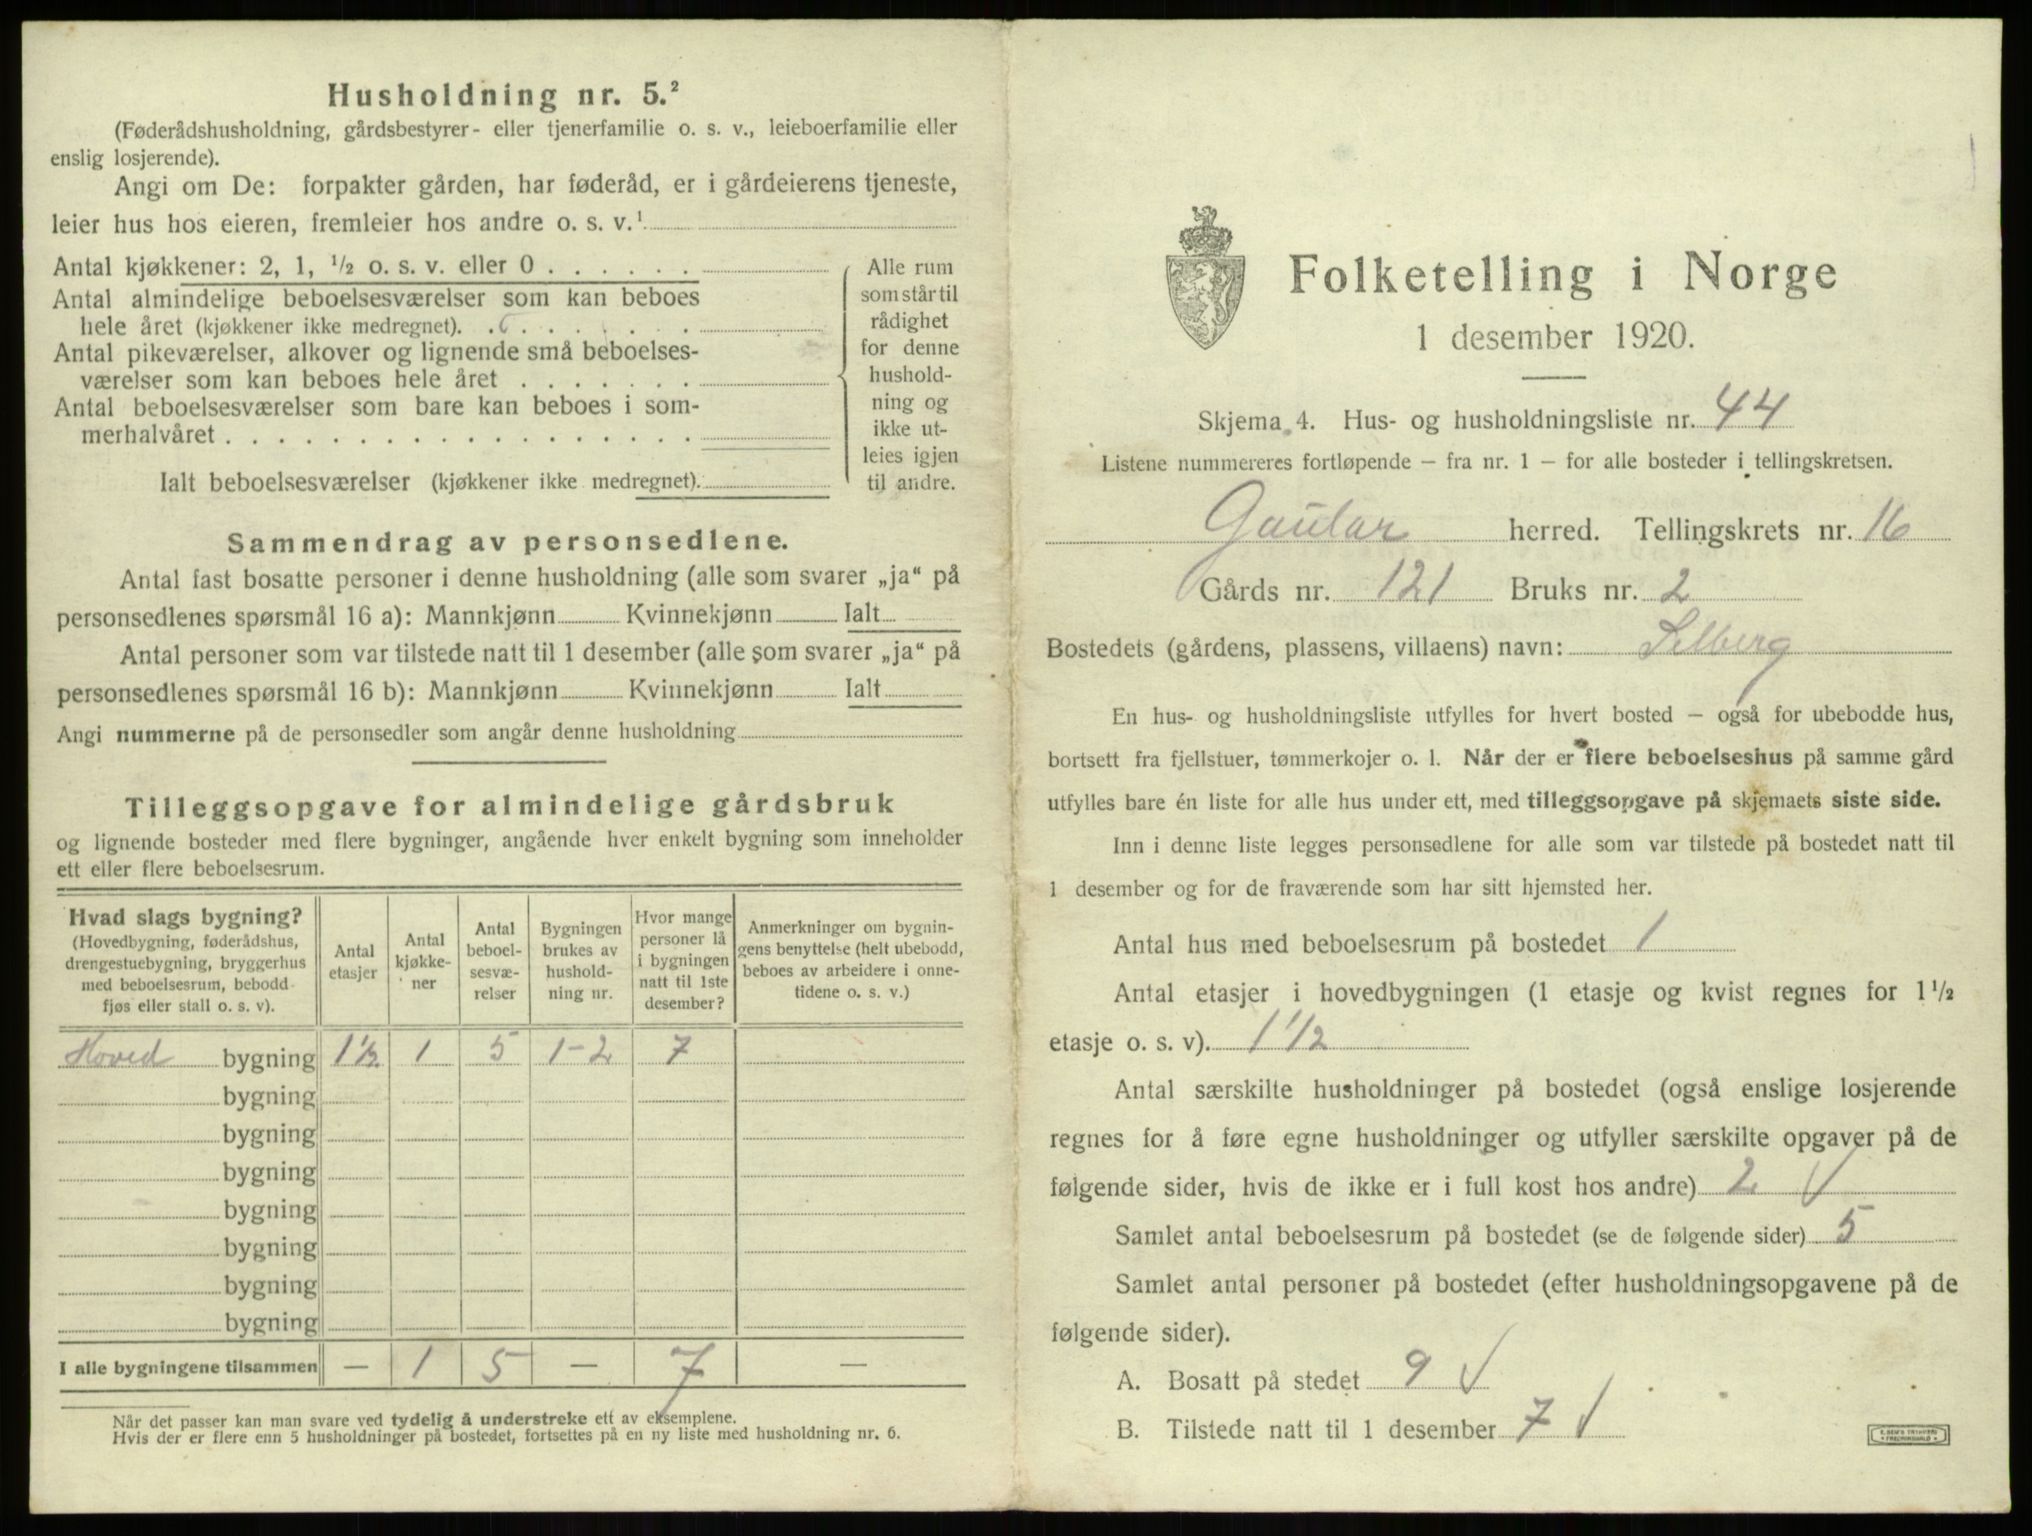 Husholdning nr. 5.²
(Føderådshusholdning, gårdsbestyrer- eller tjenerfamilie o. s. v., leieboerfamilie eller
enslig losjerende).
Angi om De: forpakter gården, har føderåd, er i gårdeierens tjeneste,
leier hus hos eieren, fremleier hos andre o. s. v.¹
Antal kjøkkener: 2, 1, ½ o. s. v. eller 0 . . . . . .
Antal almindelige beboelsesværelser som kan beboes
hele året (kjøkkener ikke medregnet). . . . . . . .
Antal pikeværelser, alkover og lignende små beboelses-
værelser som kan beboes hele året . . . . . . .
Antal beboelsesværelser som bare kan beboes i som-
merhalvåret . . . . . . . . . . . . . . . . . .
Ialt beboelsesværelser (kjøkkener ikke medregnet).
Alle rum
som står til
rådighet
for denne
hushold-
ning og
ikke ut-
leies igjen
til andre.
Sammendrag av personsedlene.
Antal fast bosatte personer i denne husholdning (alle som svarer „ja“ på
personsedlenes spørsmål 16 a): Mannkjønn Kvinnekjønn Ialt
Antal personer som var tilstede natt til 1 desember (alle som svarer „ja“ på
personsedlenes spørsmål 16 b): Mannkjønn Kvinnekjønn Ialt
Angi nummerne på de personsedler som angår denne husholdning
Tilleggsopgave for almindelige gårdsbruk
og lignende bosteder med flere bygninger, angående hver enkelt bygning som inneholder
ett eller flere beboelsesrum.
Hvad slags bygning?
(Hovedbygning, føderådshus,
drengestuebygning, bryggerhus
med beboelsesrum, bebodd
fjøs eller stall o. s. v).
Antal
etasjer
Antal
kjøkke-
ner
Antal
beboel-
sesvæ-
relser
Bygningen
brukes av
hushold-
ning nr.
Hvor mange
personer lå
i bygningen
natt til 1ste
desember?
Anmerkninger om bygnin-
gens benyttelse (helt ubebodd,
beboes av arbeidere i onne-
tidene o. s. v.)
Hoved bygning 1½ 1 5 1-2 7
bygning
bygning
bygning
bygning
bygning
bygning
bygning
I alle bygningene tilsammen — 1 5 — 7 —
Når det passer kan man svare ved tydelig å understreke ett av eksemplene.
Hvis der er flere enn 5 husholdninger på bostedet, fortsettes på en ny liste med husholdning nr. 6.
Folketelling i Norge
1 desember 1920.
Skjema 4. Hus- og husholdningsliste nr. 44
Listene nummereres fortløpende – fra nr. 1 – for alle bosteder i tellingskretsen.
Gaular herred. Tellingskrets nr. 16
Gårds nr. 121 Bruks nr. 2
Bostedets (gårdens, plassens, villaens) navn: Selberg
En hus- og husholdningsliste utfylles for hvert bosted – også for ubebodde hus,
bortsett fra fjellstuer, tømmerkojer o. l. Når der er flere beboelseshus på samme gård
utfylles bare én liste for alle hus under ett, med tilleggsopgave på skjemaets siste side.
Inn i denne liste legges personsedlene for alle som var tilstede på bostedet natt til
1 desember og for de fraværende som har sitt hjemsted her.
Antal hus med beboelsesrum på bostedet 1
Antal etasjer i hovedbygningen (1 etasje og kvist regnes for 1½
etasje o. s. v). 1½
Antal særskilte husholdninger på bostedet (også enslige losjerende
regnes for å føre egne husholdninger og utfyller særskilte opgaver på de
følgende sider, hvis de ikke er i full kost hos andre) 2 √
Samlet antal beboelsesrum på bostedet (se de følgende sider) 5
Samlet antal personer på bostedet (efter husholdningsopgavene på de
følgende sider).
A. Bosatt på stedet 9 √
B. Tilstede natt til 1 desember 7 √